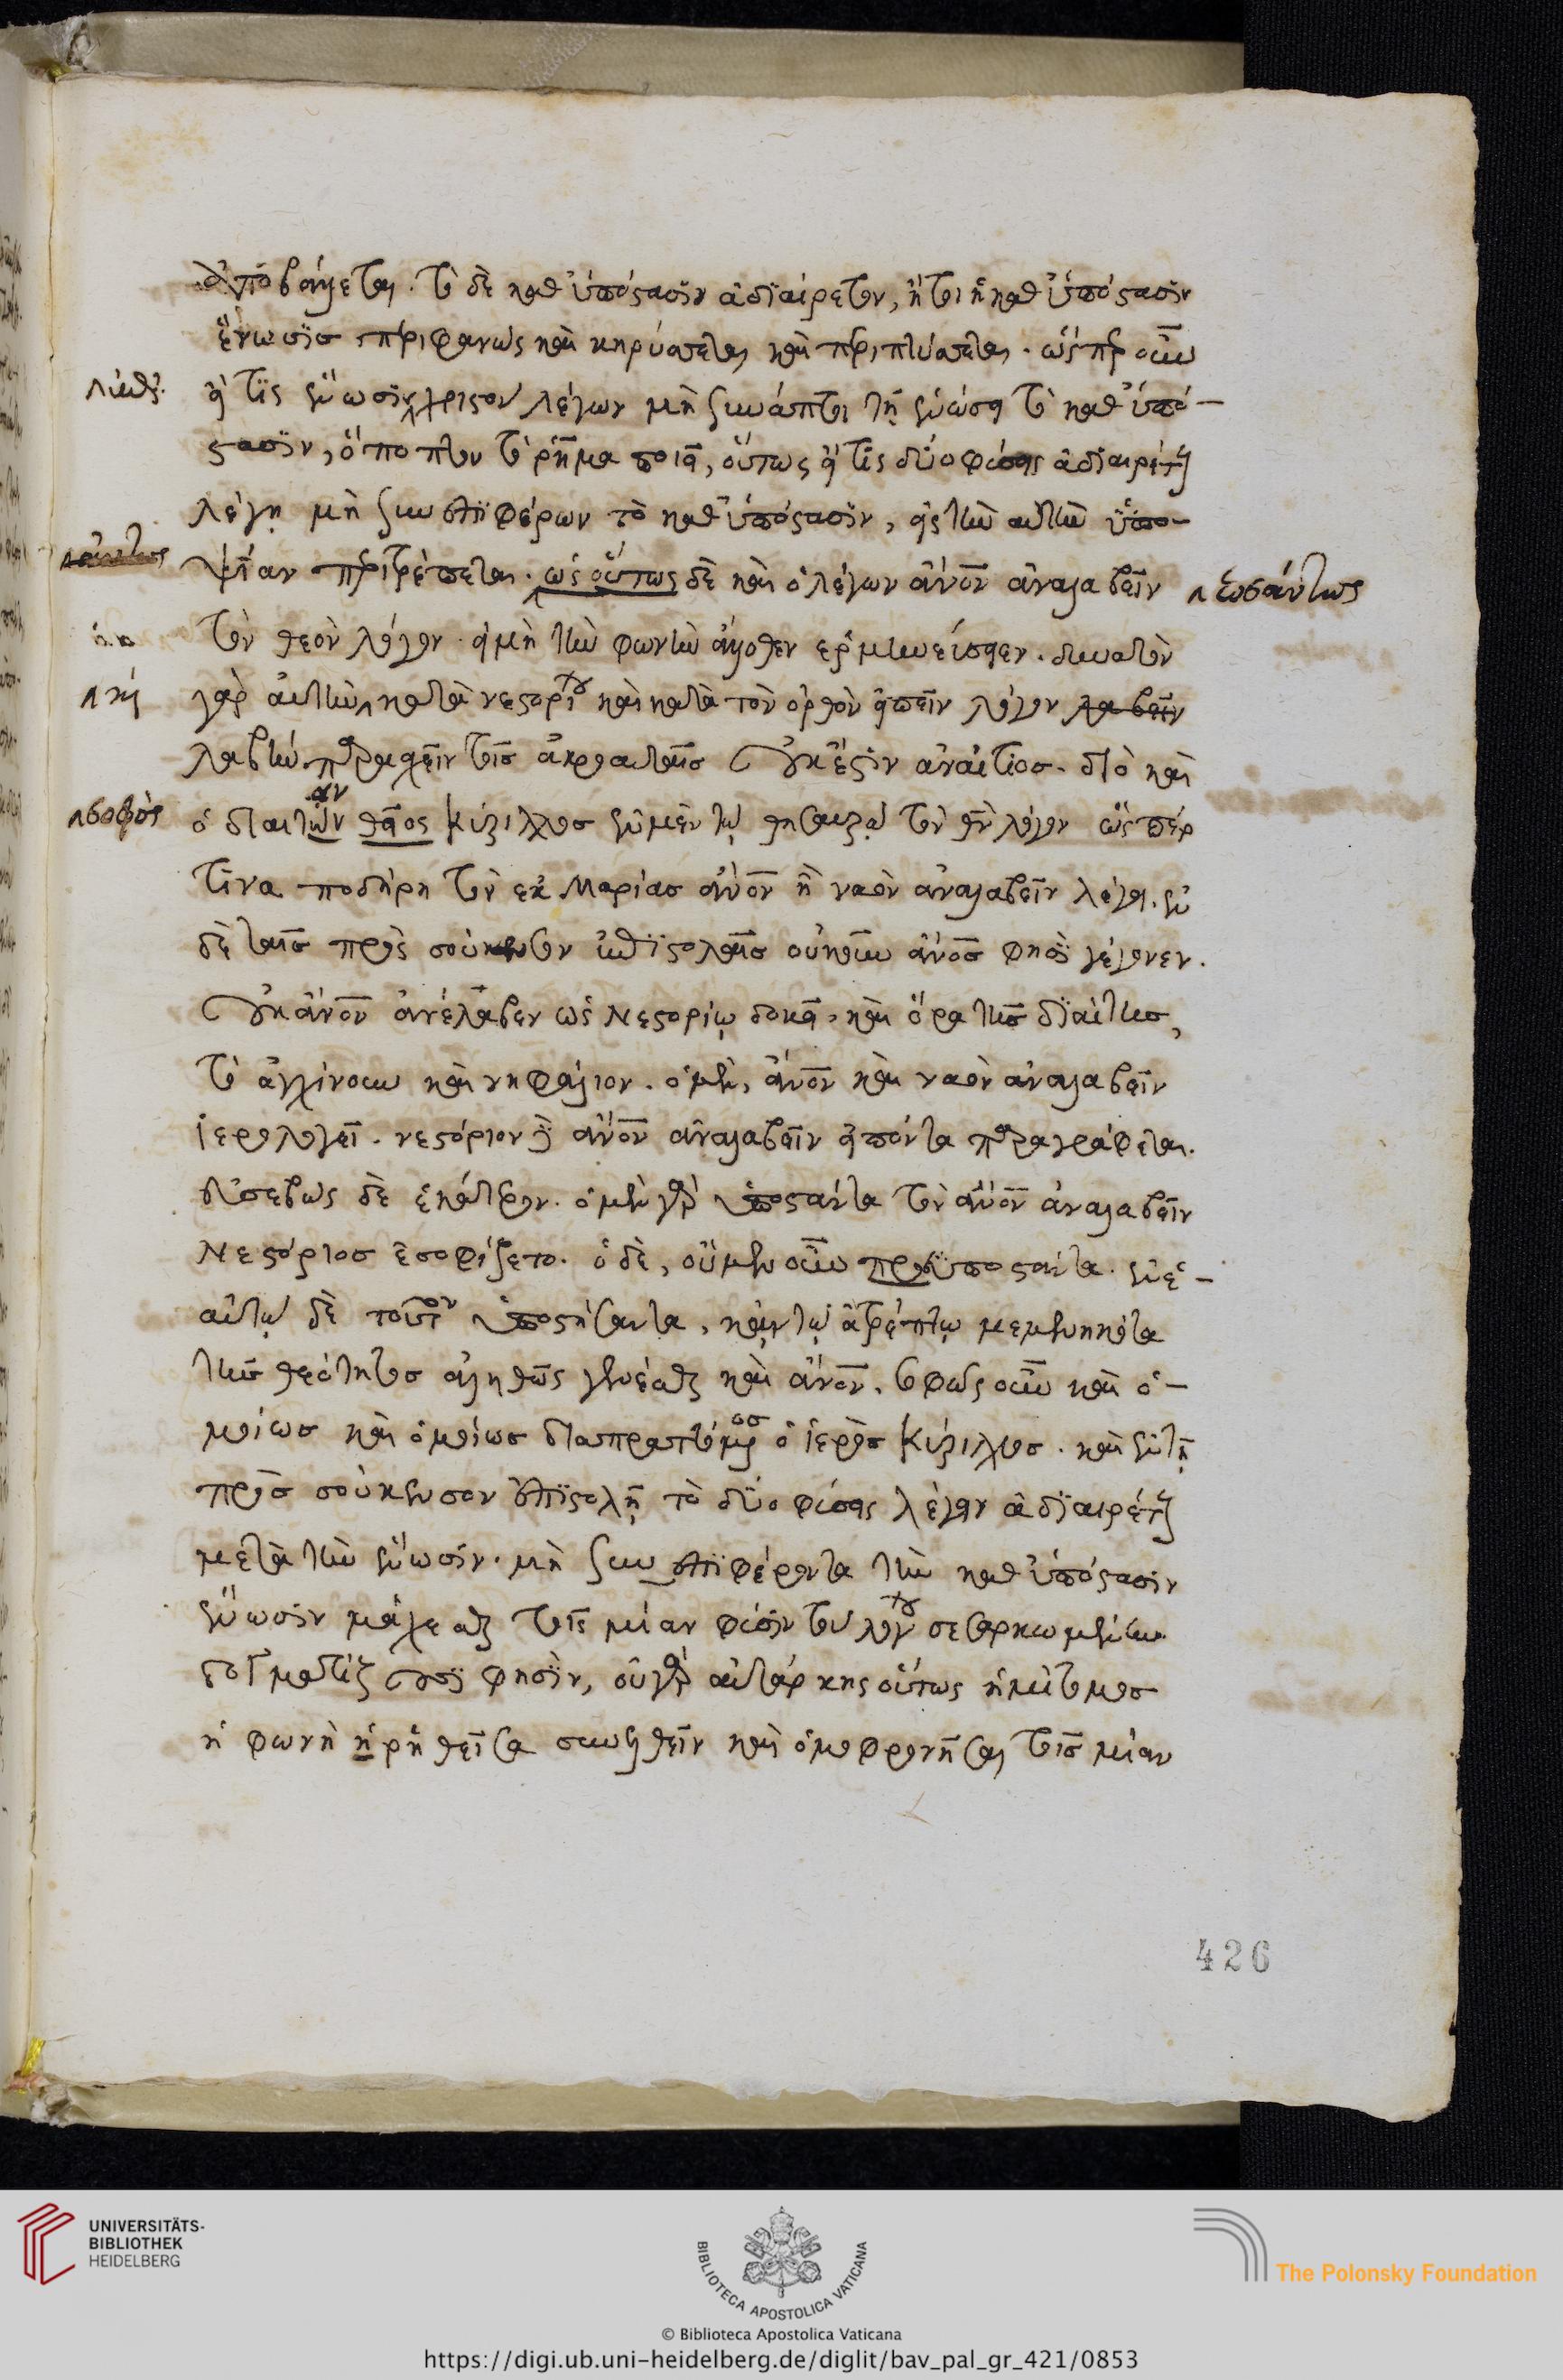 ἀποβάλλεται. τὸ δὲ καθ' ὑπόστασιν ἀδιαίρετον, ἤτοι ἡ καθ' ὑπόστασιν
ἕνωσις περιφανῶς καὶ κηρύττεται καὶ περιπτύσσεται. ὥσπερ οὖν
εἴ τις ἕνωσιν χριστοῦ λέγων μὴ συνάπτοι τῇ ἑνώσει τὸ καθ' ὑπό-
στασιν, ὕποπτον τὸ ῥῆμα ποιεῖ, οὕτως εἴ τις δύο φύσεις ἀδιαιρέτως
λέγῃ μὴ συνεπιφέρων τὸ καθ' ὑπόστασιν, εἰς τὴν αὐτὴν ὑπο-
ψίαν περιτρέπεται. ὡς οὕτως δὲ καὶ ὁ λέγων ἄνον ἀναλαβεῖν
^ ὡσαύτως
τὸν θεὸν λόγον. εἰ μὴ τὴν φωνὴν ἄλλοθεν ἑρμηνεύσειεν. δυνατὸν
^ καὶ
γὰρ αὐτὴν κατὰ νεστορίου καὶ κατὰ τὸν ὀρθὸν εἰπεῖν λόγον λαβεῖν
λαβὴν παρασχεῖν τοῖς ἀκροαταῖς οὐκ ἔστιν ἀναίτιος. διὸ καὶ
^ σοφὸς
ὁ θεῖος Κύριλλος ἐν μὲν τῷ θησαυρῷ τὸν θν λόγον ὥσπερ
τινα ποδήρη τὸν ἐκ Μαρίας ἄνον ἢ ναὸν ἀναλαβεῖν λέγει. ἐν
δὲ ταῖς πρὸς σούκενσον ἐπιστολαῖς οὐκοῦν ἄνος φησὶ γέγονεν.
οὐκ ἄνον ἀνέλαβεν ὡς Νεστορίῳ δοκεῖ. καὶ ὅρα τῆς διαίτης,
τὸ ἀγχίνουν καὶ νηφάλιον. ὁ μὲν, ἄνον καὶ ναὸν ἀναλαβεῖν
ἱερολογεῖ. νεστόριον δὲ ἄνον ἀναλαβεῖν εἰπόντα παραγράφεται.
εὐσεβῶς δὲ ἑκάτερον. ὁ μὲν γὰρ ὑποστάντα τὸν ἄνον ἀναλαβεῖν
Νεστόριος ἐσοφίζετο. ὁ δὲ, οὐ μὲν οὖν προϋποστάντα. ἐν ἑ-
αυτῷ δὲ τοῦτον ὑποστήσαντα, κἀν τῷ ἀτρέπτῳ μεμενηκότα
τῆς θεότητος ἀληθῶς γενέσθαι καὶ ἄνον. σοφῶς οὖν καὶ ὁ-
μοίως καὶ ὁμοίως διαπραττόμενος ὁ ἱερὸς Κύριλλος. καὶ ἐν τῇ
πρὸς σούκενσον ἐπιστολῇ τὸ δύο φύσεις λέγειν ἀδιαιρέτως
μετὰ τὴν ἕνωσιν. μὴ συνεπιφέροντα τὴν καθ' ὑπόστασιν
ἕνωσιν μάχεσθαι τοῖς μίαν φύσιν τοῦ λόγου σεσαρκωμένην
δογματίζουσι φησὶν, οὐ γὰρ αὐτάρκης οὕτως
ἡ φωνὴ ἡ ῥηθεῖσα συνελθεῖν καὶ ὁμοφρονῆσαι τοῖς μίαν
426
UNIVERSITÄTS-
BIBLIOTHEK
HEIDELBERG
BIBLIOTECA APOSTOLICA VATICANA
The Polonsky Foundation
© Biblioteca Apostolica Vaticana
https://digi.ub.uni-heidelberg.de/diglit/bav_pal_gr_421/0853